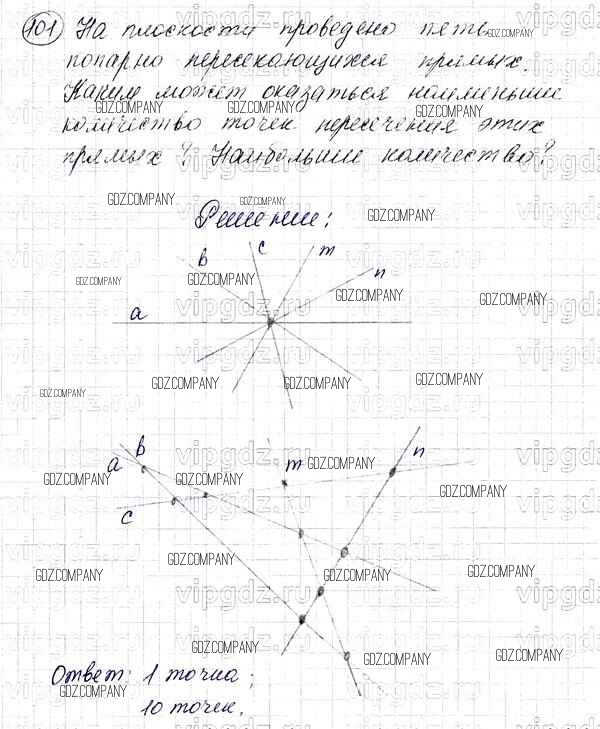 101 На плоскости проведено пять
попарно пересекающихся прямых.
Каким может оказаться наименьшее
количество точек пересечения этих
прямых? Наибольшее количество?
Решение:
b c m n
a
a b m n
c
Ответ: 1 точка;
10 точек.
GDZ.COMPANY
vipgdz.ru